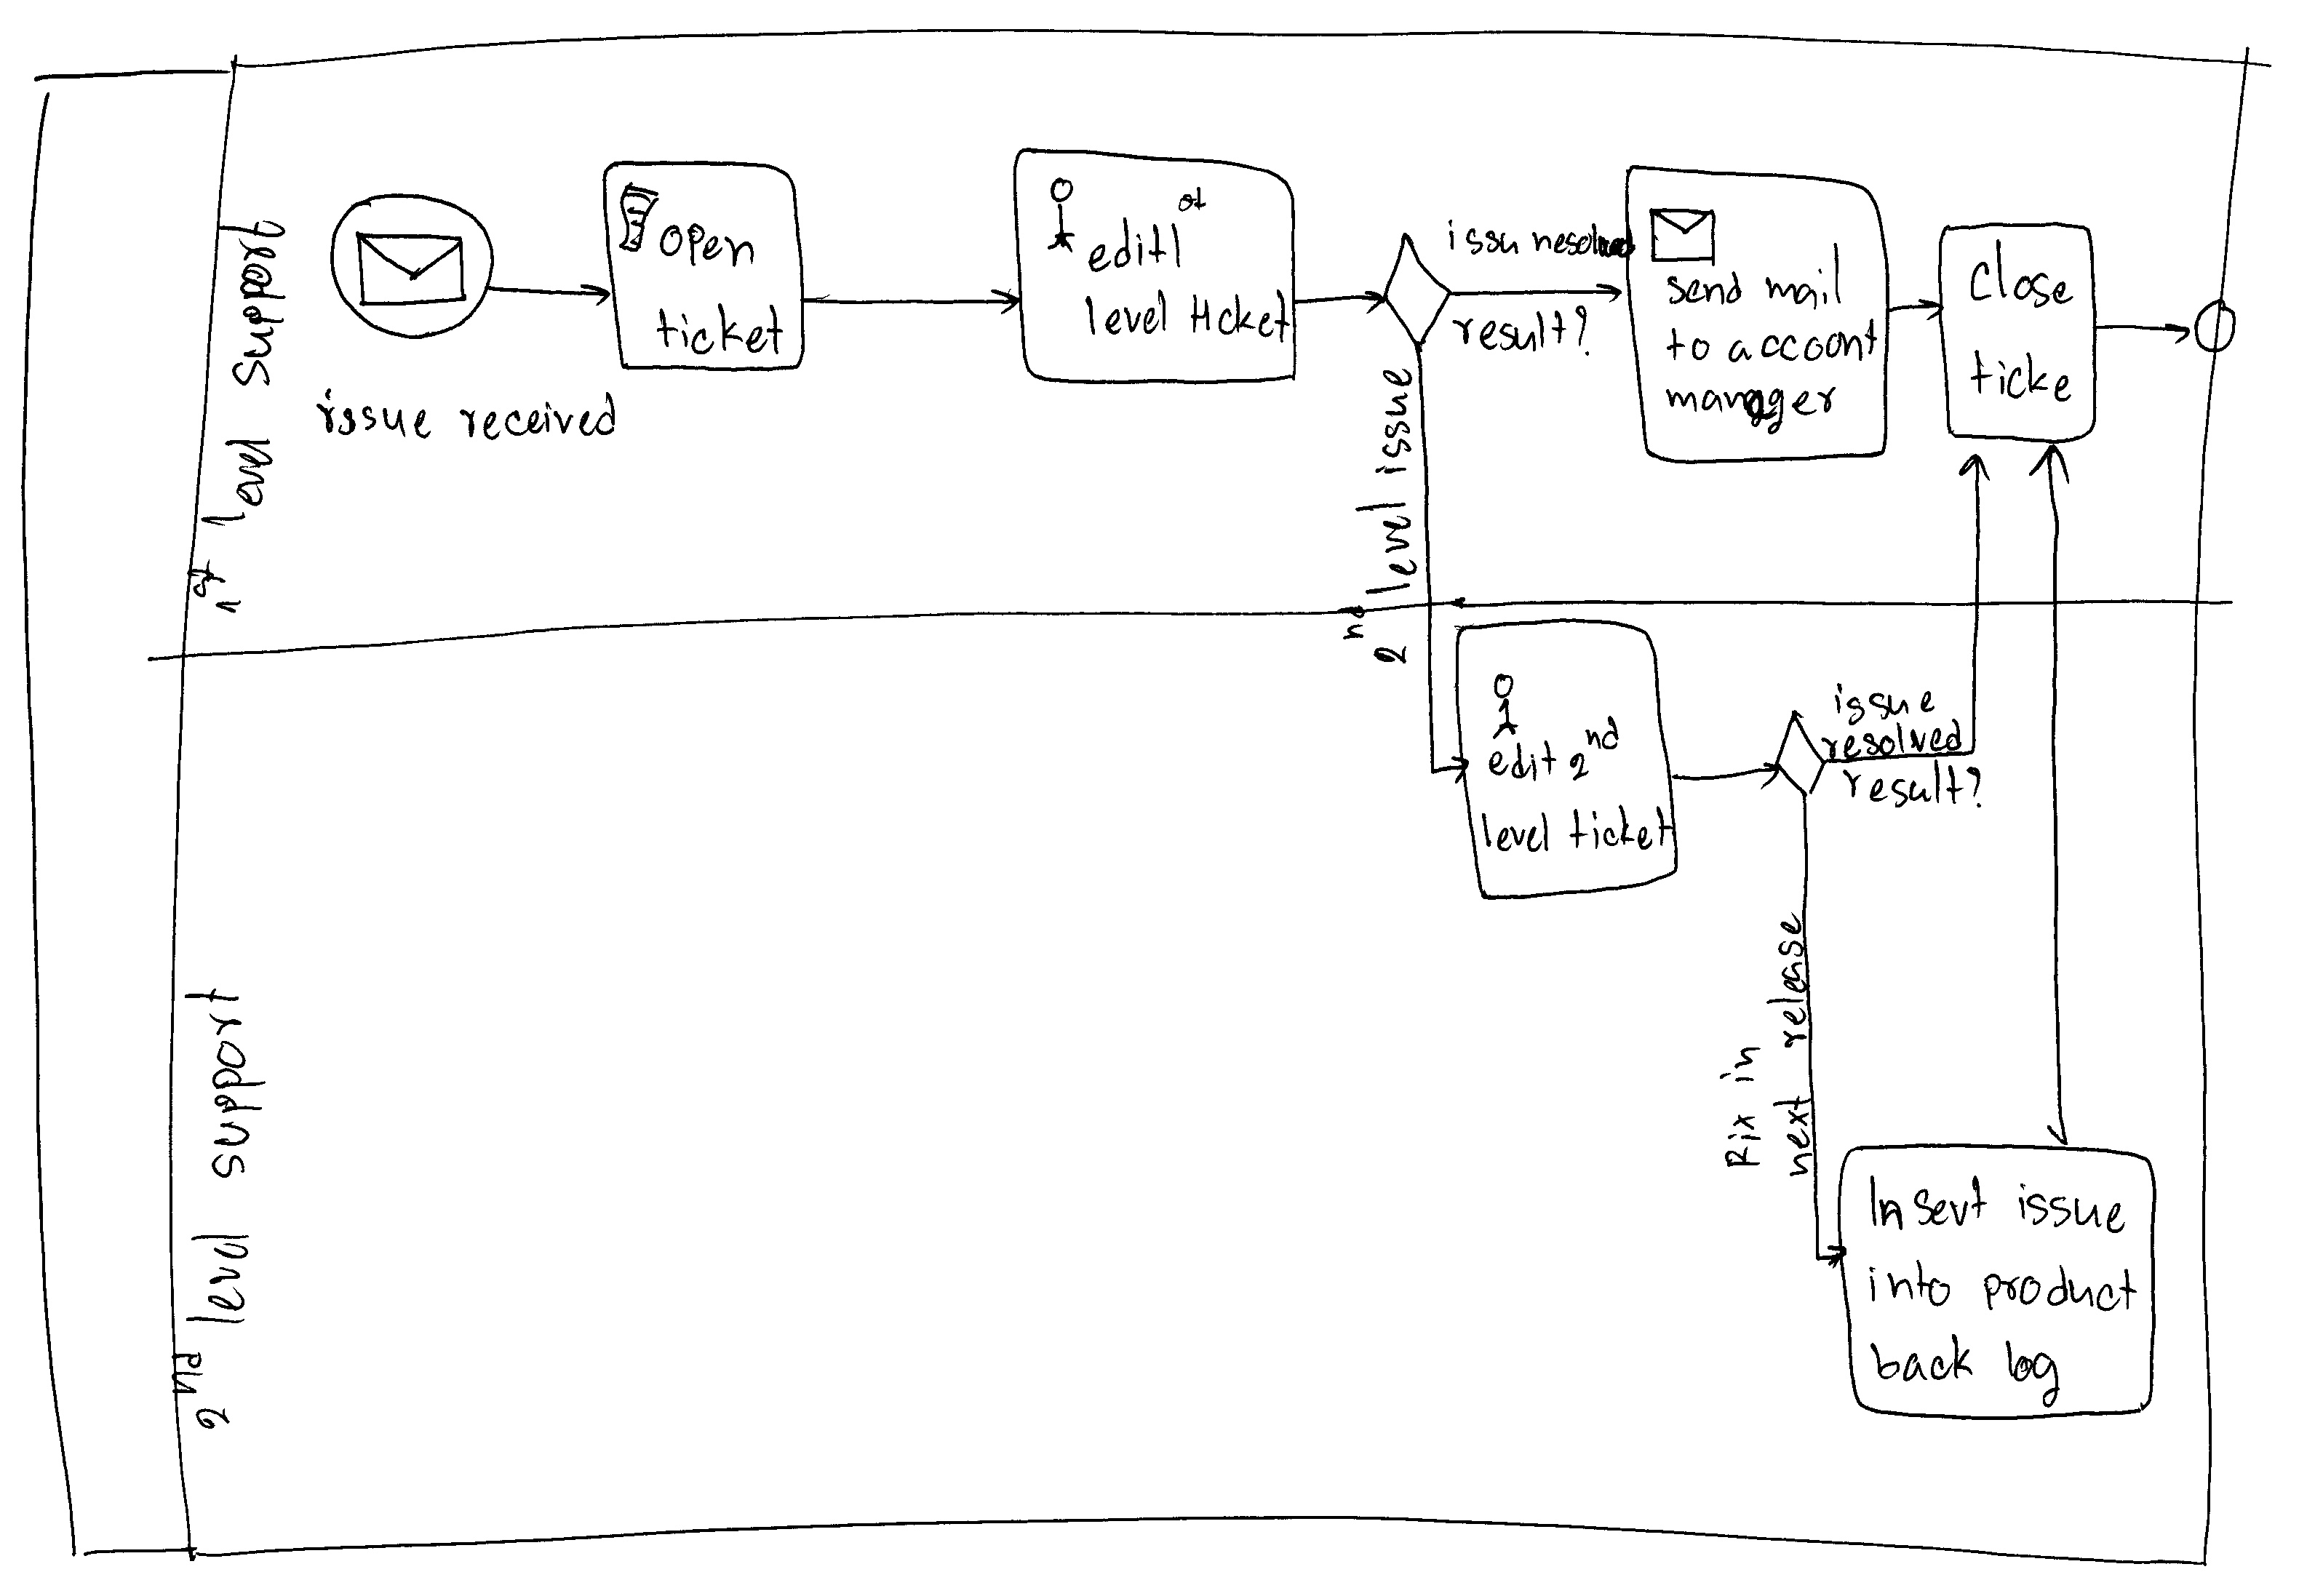 1st level support
issue received
open
ticket
edit 1st
level ticket
issu resolved
result?
2nd level issue
send mail
to accoont
manager
close
ticke
2nd level support
edit 2nd
level ticket
issue
resolved
result?
Fix in
next release
Insert issue
into product
back log